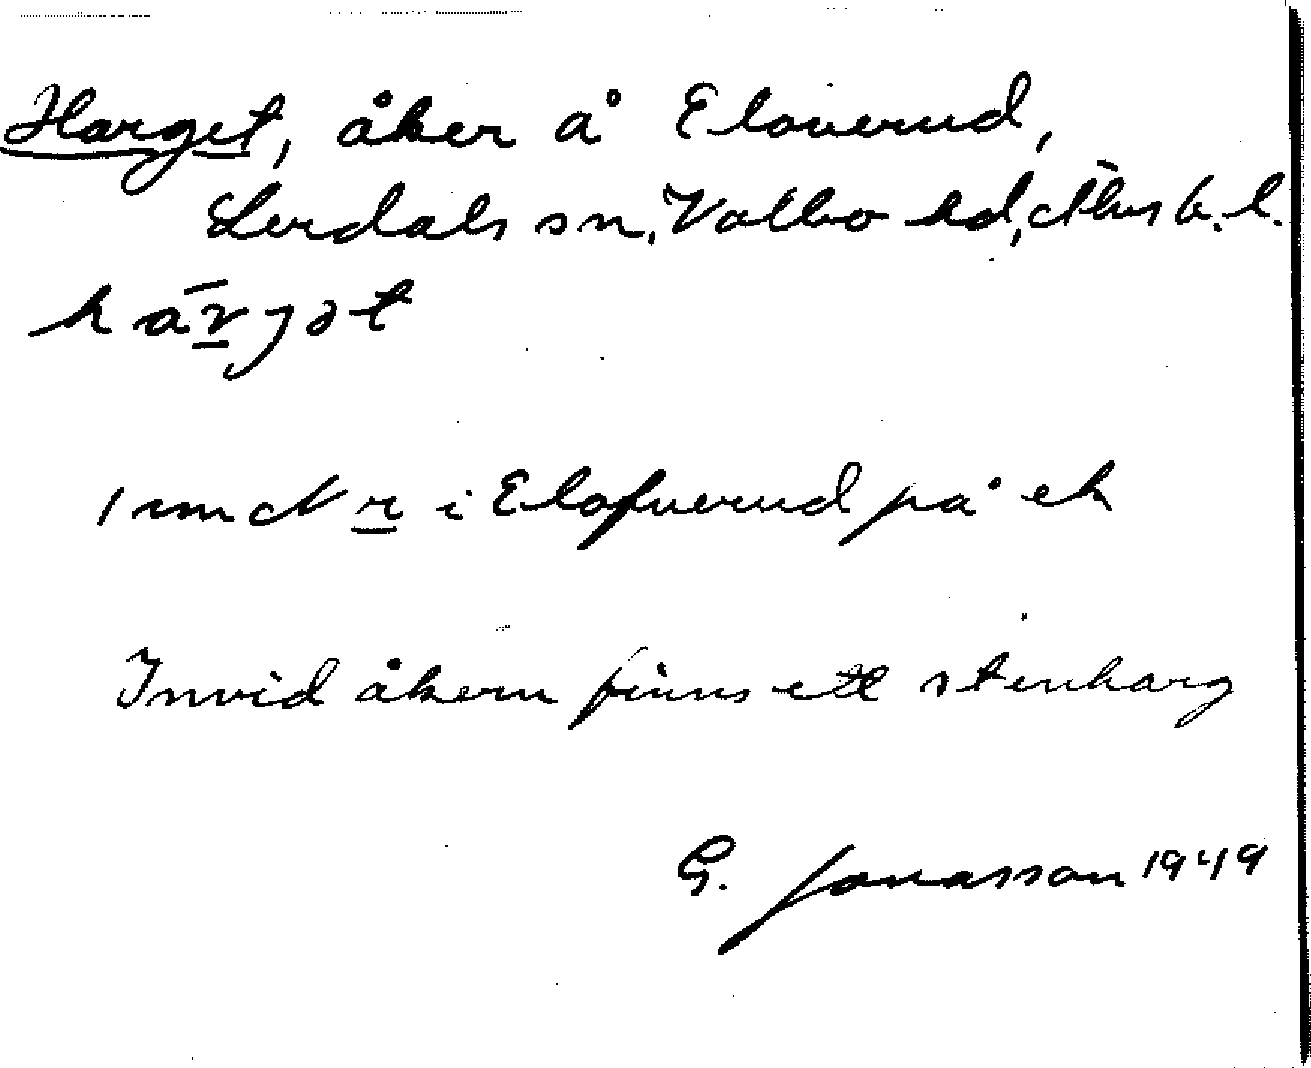 Harget, åker å Eloverud,
Lerdals sn, Valbo hd, Älvsb. l.
i Elofverud på ek
Invid åkern finns ett stenharg
G. Jonasson 1949